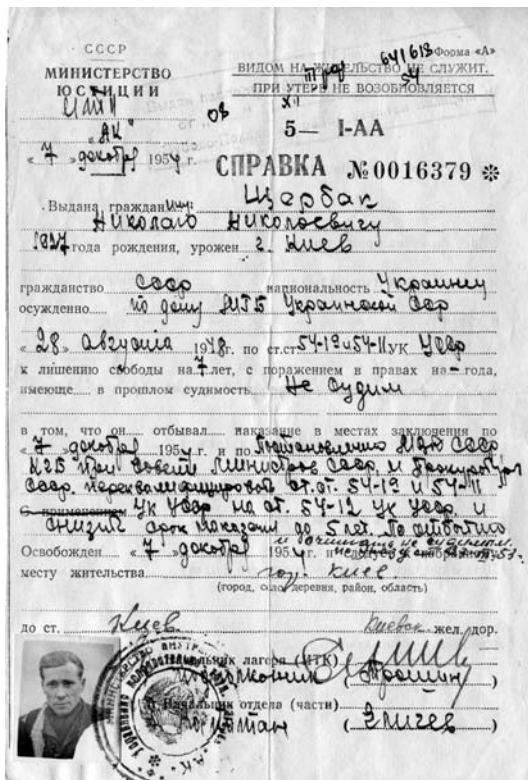 СССР
МИНИСТЕРСТВО
ЮСТИЦИИ
641618 Форма «А»
ВИДОМ НА ЖИТЕЛЬСТВО НЕ СЛУЖИТ.
ПРИ УТЕРЕ НЕ ВОЗОБНОВЛЯЕТСЯ
08 XII 54
"АК"
5— I-АА
« 7 » декабря 1954 г.
СПРАВКА № 0016379 *
Выдана граждан ину: Щербак
Николаю Николаевичу
1927 года рождения, урожен г. Киев
гражданство СССР национальность Украинец
осужденно по делу МГБ Украинской ССР
« 28 » августа 1948 г. по ст.ст 54-1а и 54-11 УК УССР
к лишению свободы на 7 лет, с поражением в правах на — года,
имеюще в прошлом судимость Не судим
в том, что он отбывал наказание в местах заключения по
« 7 » декабря 1954 г. и по Постановлению СССР
при Совете Министров СССР и Прокуратура
СССР. переквалифицировать ст.ст. 54-1а и 54-11
УК УССР на ст. 54-12 УК УССР и
снизить срок наказания до 5 лет. По отбытию
и считать не судимым.
Освобожден « 7 » декабря 1954 г. и
месту жительства гор. Киев
(город, село, деревня, район, область)
до ст. Киев Киевск. жел. дор.
Начальник лагеря (ИТК)
подполковник ( Трошин )
Начальник отдела (части)
капитан